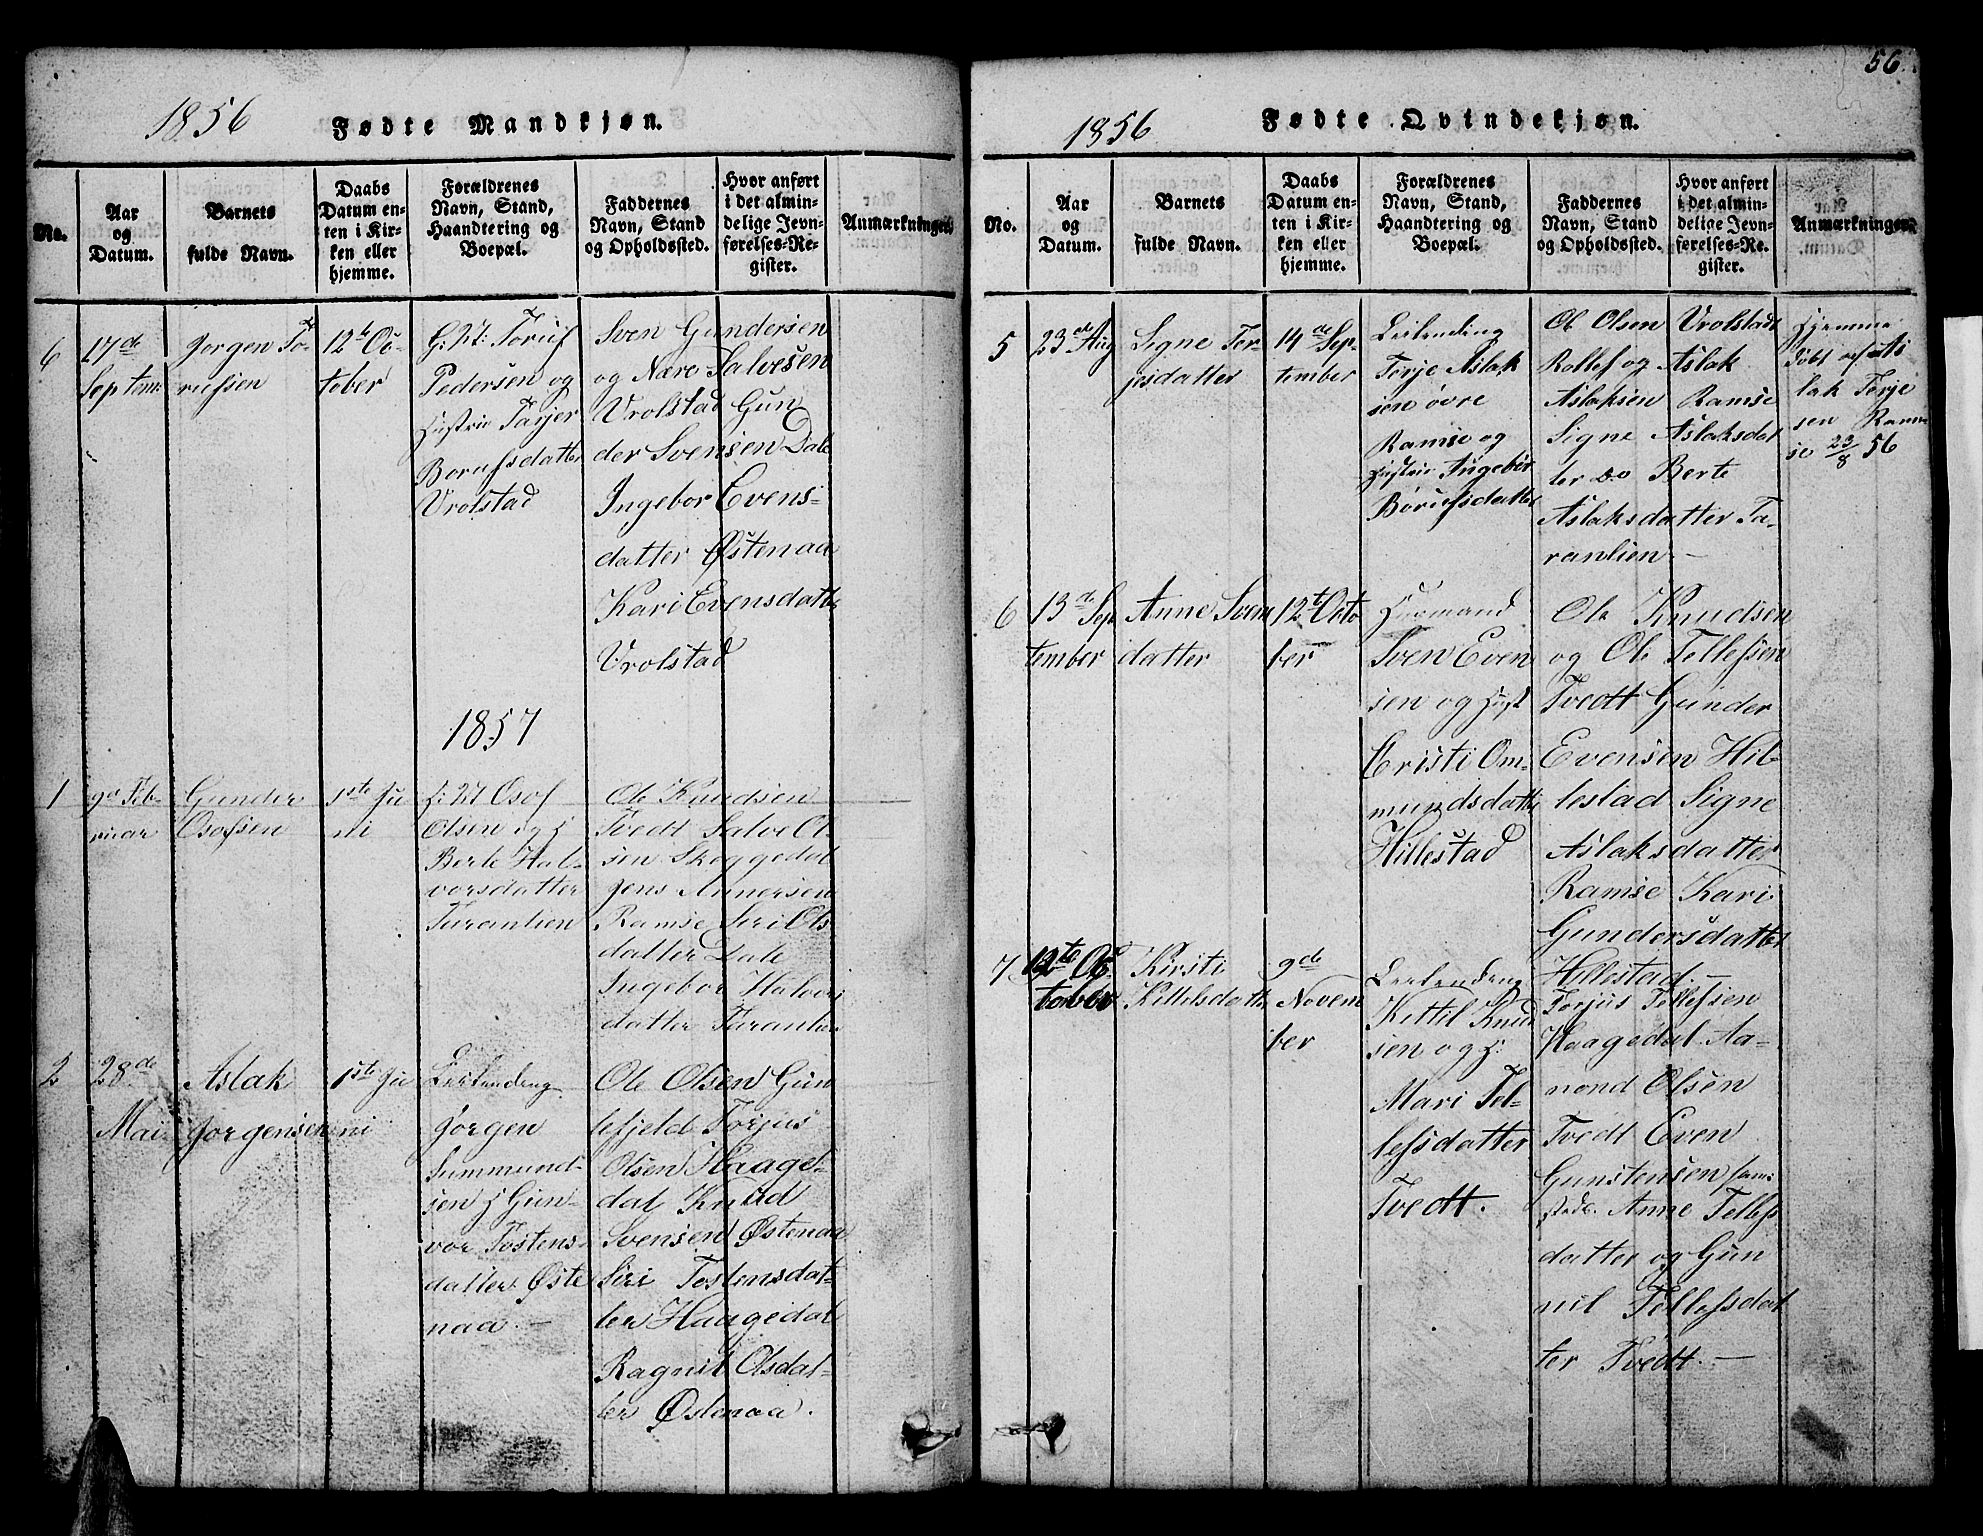 56.
1856 Fødte Mandkjøn.
No.
Aar
og
Datum.
Barnets
fulde Navn.
Daabs
Datum en-
ten i Kir-
ken eller
hjemme.
Forældrenes
Navn, Stand,
Haandtering og
Boepæl.
Faddernes
Navn, Stand
og Opholdssted.
Hvor anført
i det almin-
delige Jevn-
førelses-Re-
gister.
Anmærkninger.
6
17de
Septem:
Jorgen To-
riefsen
12te Oc-
tober
G: M: Toruf
Pedersen og
Hustrue Tarjer
Borufsdatter
Vrolstad
Sven Gundersen
og Næro Salvesen
Vrolstad Gun
der Svensen Dale
Ingebor Evens-
datter Østenaa
Kari Evensdatter
Vrolstad
1857
1
9de Feb-
ruar
Gunder
Osofsen
1ste Ju
ni
Osof
Olsen og H
Berte Hal-
vorsdatter
Taranlien
Ole Knudsen
Tvedt Salve Ol-
sen Skeggedal
Jens Annersen
Ramse Siri Ols-
datter Dale
Ingebor Halvors
datter Taranlien
2
28de
Mai
Aslak
Jorgensen
1ste Ju
ni
Leilending
Jorgen
Summund-
sen H Gun-
vor Tostens-
datter Øste
naa. —
Ole Olsen Gun
lefjeld Torjus
Olsen Haage-
dal Knud
Svensen Østenaa
Siri Tostensdat-
ter Haagedal
Ragnil Olsdat-
ter Østenaa.
1856 Fødte Qvindekjøn.
No.
Aar
og
Datum.
Barnets
fulde Navn.
Daabs
Datum en-
ten i Kir-
ken eller
hjemme.
Forældrenes
Navn, Stand,
Haandtering og
Boepæl.
Faddernes
Navn, Stand
og Opholdssted.
Hvor anført
i det almin-
delige Jevn-
førelses-Re-
gister.
Anmærkninger.
5
23de Aug
Signe Ter-
jesdatter
14de Sep-
tember
Leilending
Terje Aslak
sen øvre
Ramse og
Hustrue Angeber
Boriefsdatter
Ole Olsen Vrolstad
Rollef og Aslak
Aslaksen Ramse
Signe Aslaksdat
ter do Berte
Aslaksdatter Ta-
ranlien. —
Hjemme
døbt af As
lak Terje
sen Ram-
se 23/8 56
6
13de Sep
tember
Anne Svens
datter
12te Octo
ber
Huusmand
Sven Even
sen og Hust
Cristi Om-
mundsdatter
Hillestad
Ole Knudsen
og Ole Tellefsen
Tvedt Gunder
Evensen Hil-
lestad Signe
Aslaksdatter
Ramse Kari
Gundersdatter
Hillestad. —
7
12te Oc
tober
Kirsti
Kittelsdatter
9de
Novem
ber
Leilending
Kittil Knud
sen og H:
Mari Tel-
lefsdatter
Tvedt.
Torjus Tellefsen
Haagedal Aa-
nond Olsen
Tvedt Even
Gunstensen
Anne Tellefs
datter og Gun
nil Tellefsdat
ter Tvedt. —